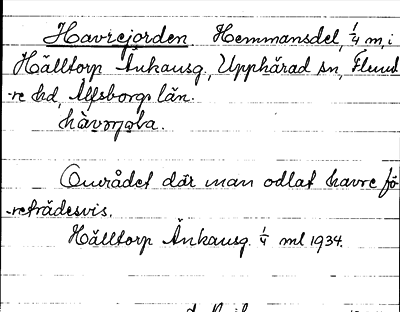 Havrejorden Hemmansdel, 1/4 m, i
Hälltorp Änkausg., Upphärad sn, Flund
-re hd, Älfsborgs län.
hàvọrjola.
Området där man odlat havre fö
-reträdesvis.
Hälltorp Änkausg. 1/4 ml 1934.